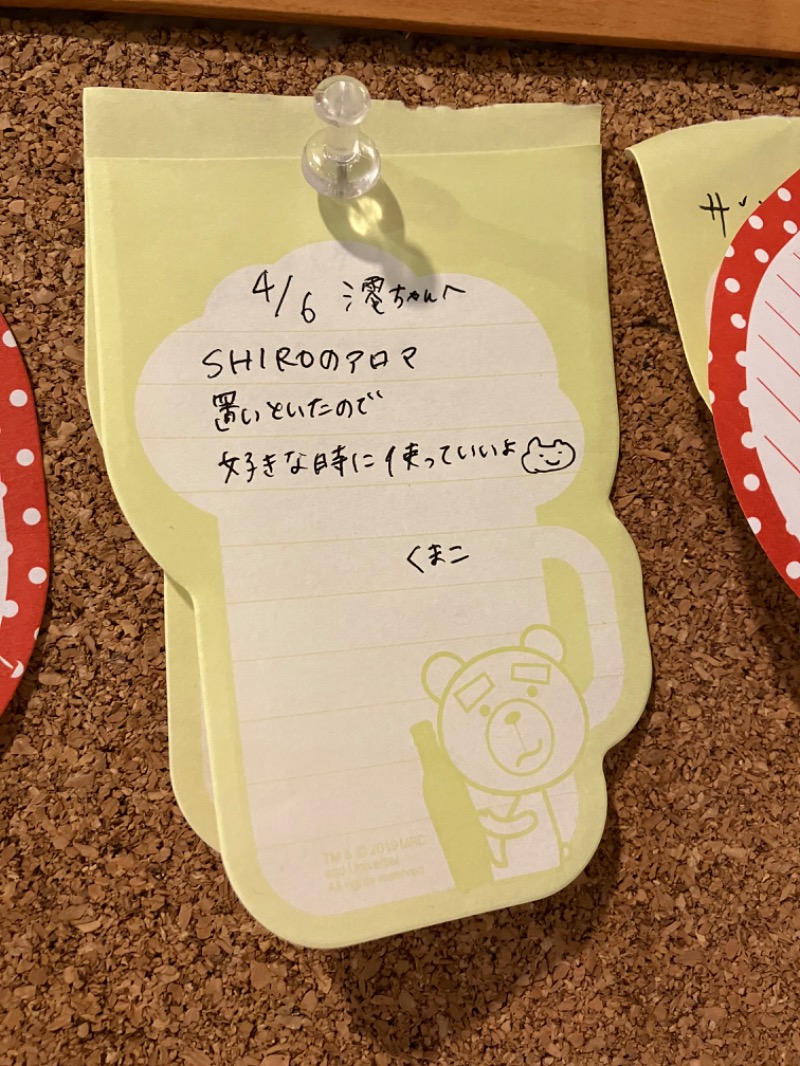 4/6 澪ちゃんへ
SHIROのアロマ
置いといたので
好きな時に使っていいよ
くまこ
TM & © 2019 MRC
and Universal
All rights reserved